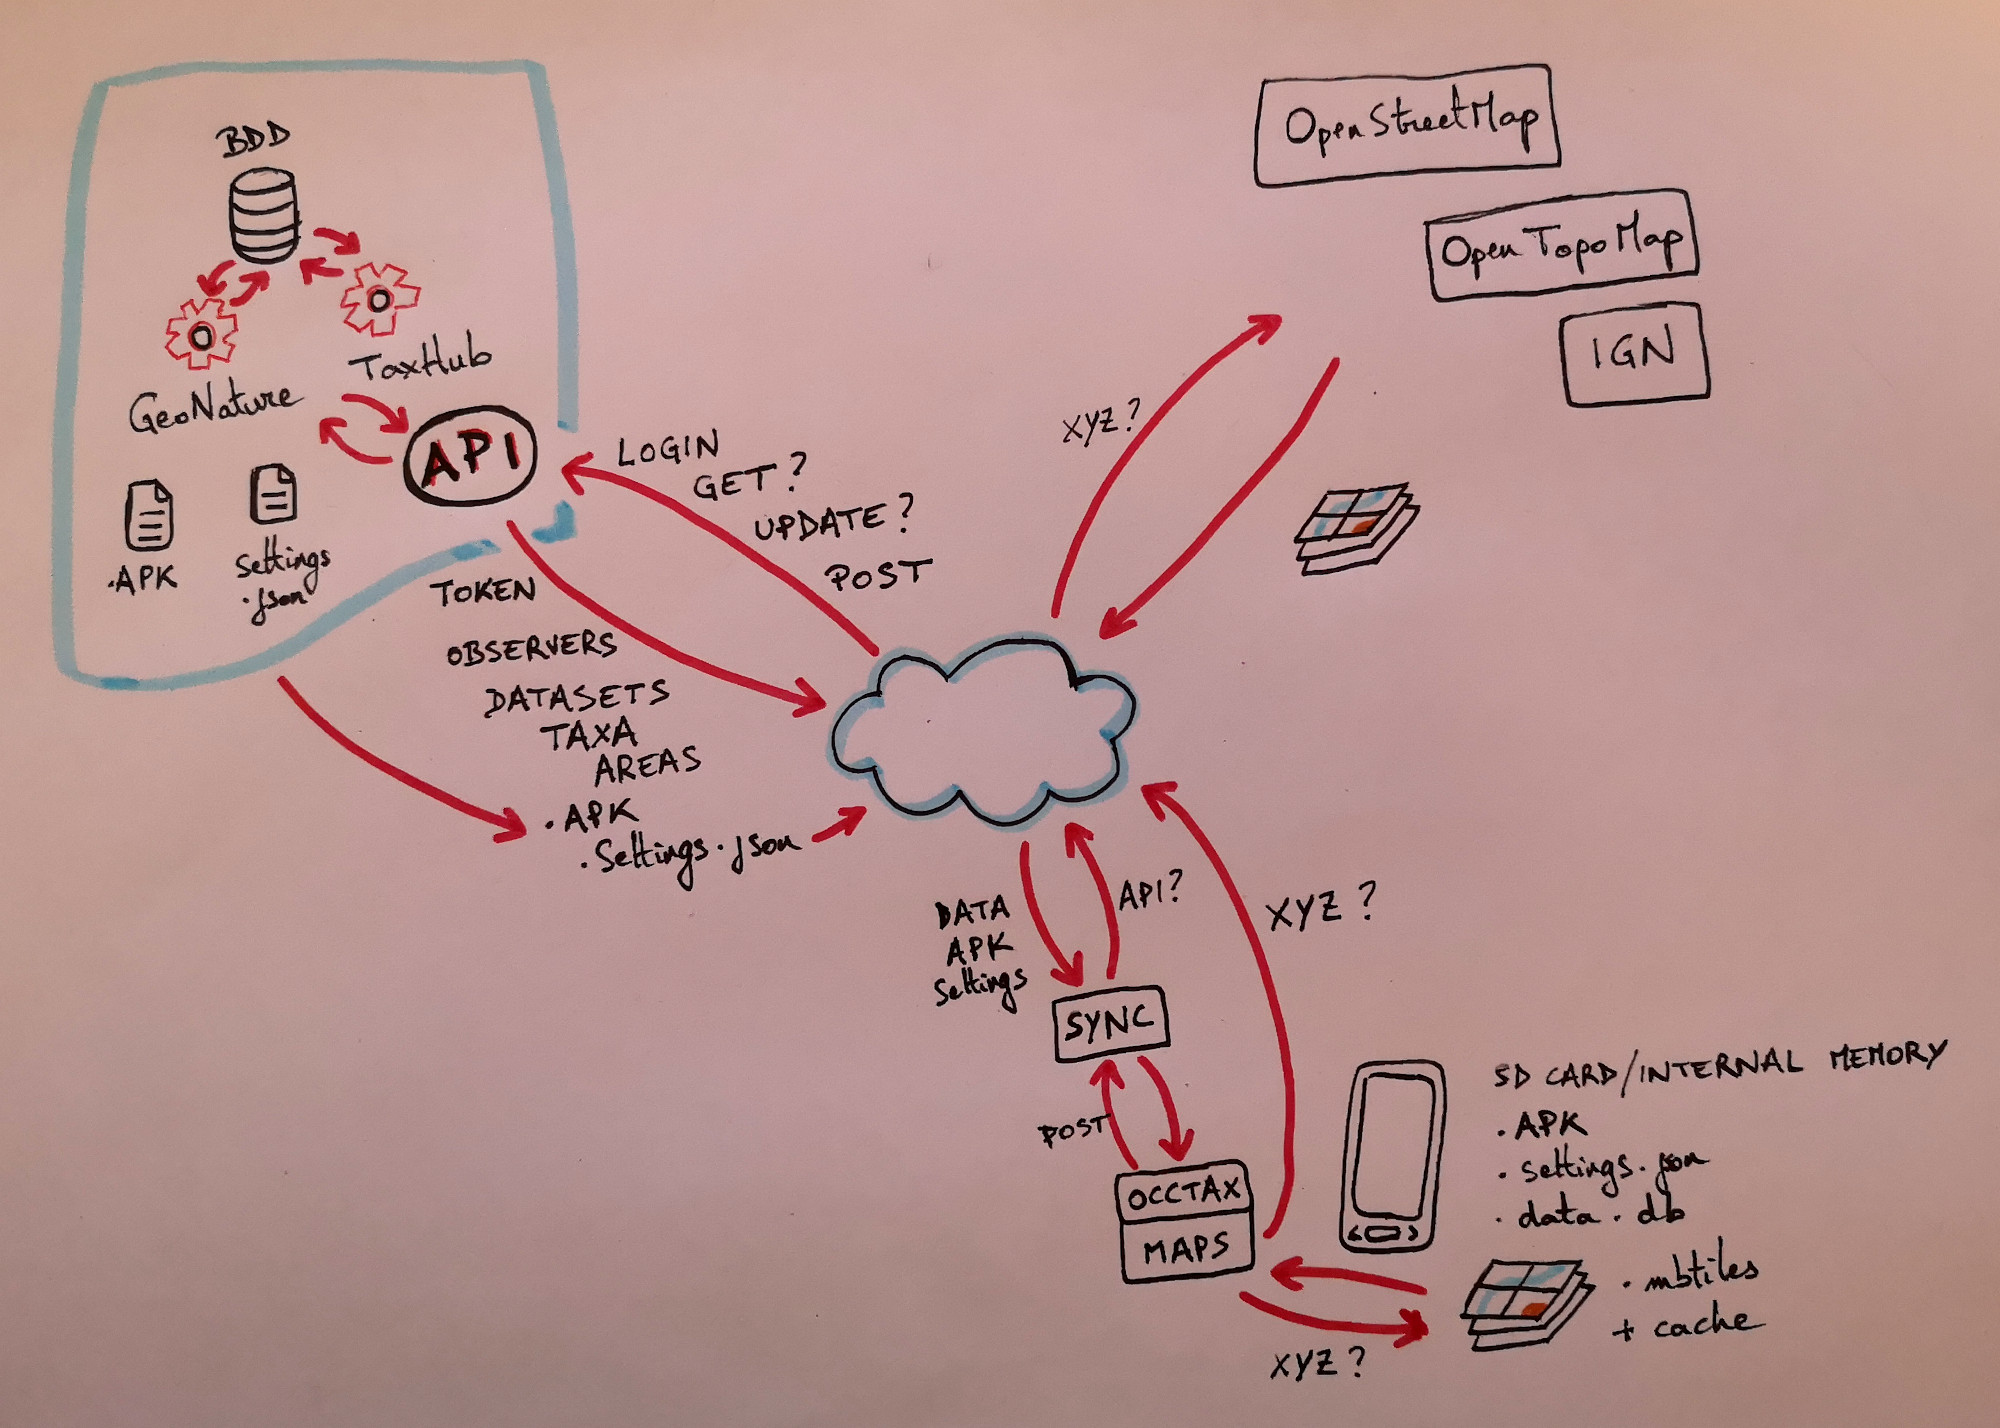 BDD
TaxHub
GeoNature
API
.APK
settings
.json
LOGIN
GET?
UPDATE?
POST
TOKEN
OBSERVERS
DATASETS
TAXA
AREAS
.APK
.settings.json
OpenStreetMap
OpenTopoMap
IGN
XYZ?
DATA
APK
settings
API?
XYZ?
SYNC
POST
OCCTAX
MAPS
SD CARD/INTERNAL MEMORY
.APK
.settings.json
.data.db
.mbtiles
+ cache
XYZ?